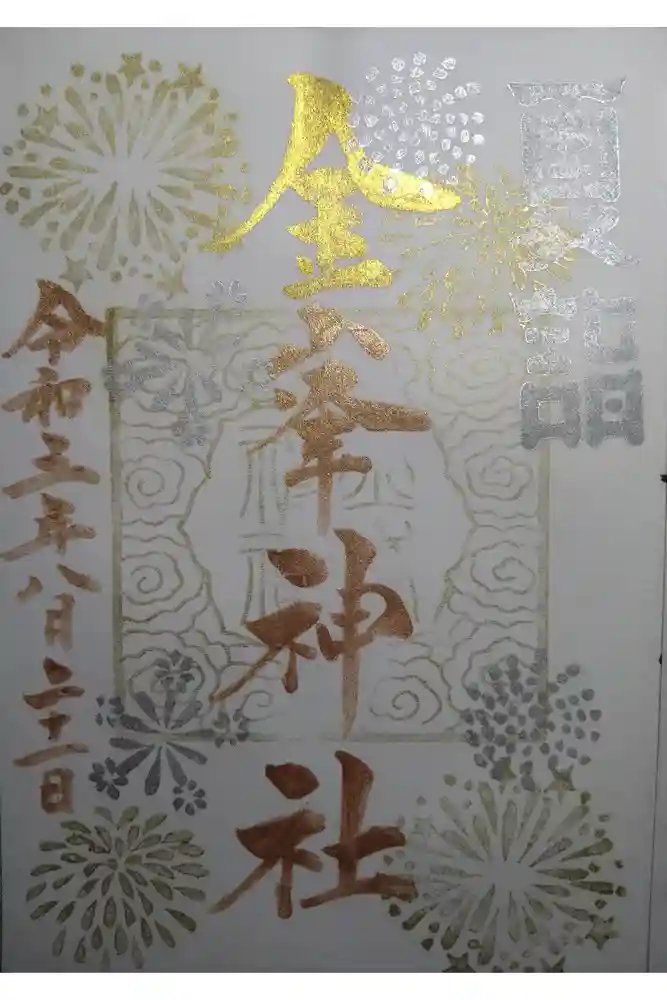 夏詣
金峯神社
令和三年八月二十一日